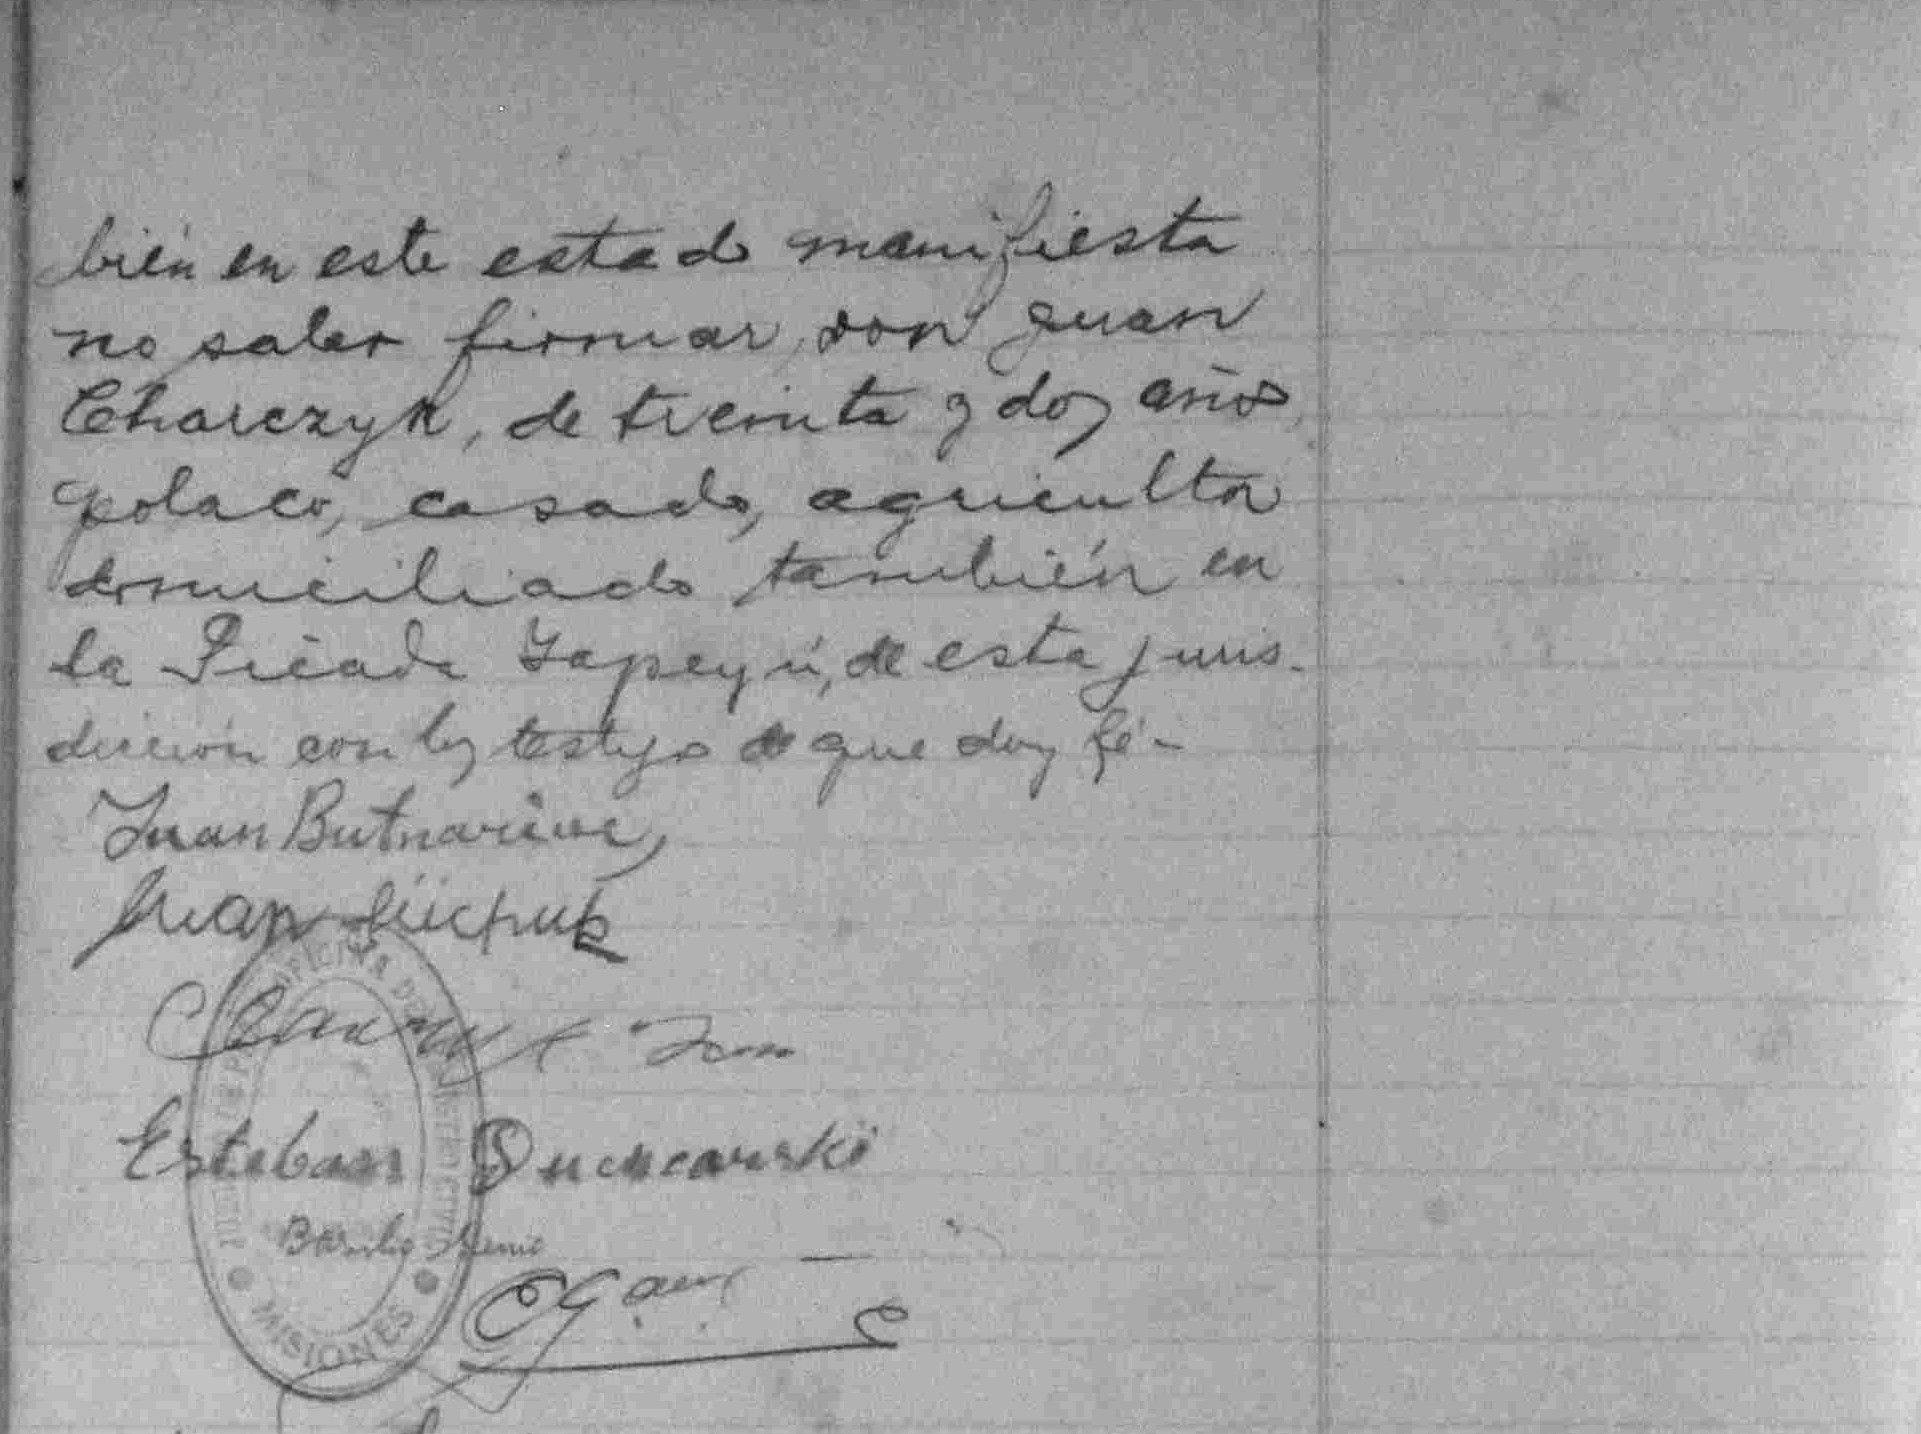 bién en este estado manifiesta
no saber firmar, don Juan
Charczyk, de treinta y dos años,
polaco, casado, agricultor
domiciliado también en
la Picada Yapeyú, de esta juris-
dicción con los testigos de que doy fé-
Juan Butnariuc
Juan
Juan
Esteban
Basilio
OFICINA DEL REGISTRO CIVIL
MISIONES